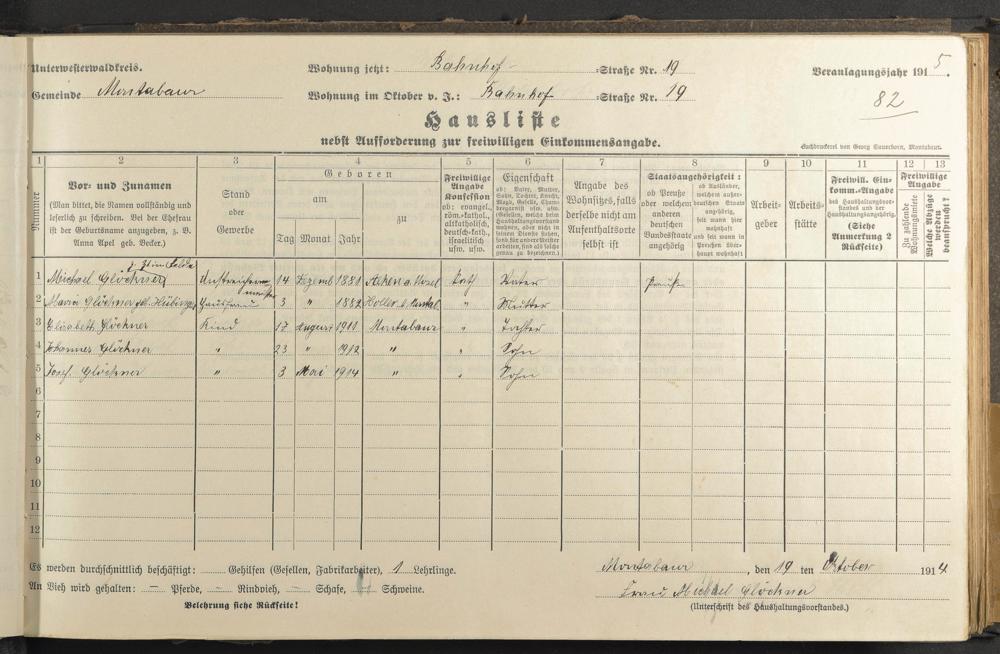 Unterwesterwaldkreis.
Wohnung jetzt: Bahnhof -Straße Nr. 19
Veranlagungsjahr 1915.
Gemeinde Montabaur
Wohnung im Oktober v. J.: Bahnhof -Straße Nr. 19
82
Hausliste
nebst Aufforderung zur freiwilligen Einkommensangabe.
Buchdruckerei von Georg Sauerborn, Montabaur.
1 2 3 4 5 6 7 8 9 10 11 12 13
Nummer
Vor- und Zunamen
(Man bittet, die Namen vollständig und
leserlich zu schreiben. Bei der Ehefrau
ist der Geburtsname anzugeben, z. B.
Anna Apel geb. Becker.)
Stand
oder
Gewerbe
Geboren
am
zu
Tag Monat Jahr
Freiwillige
Angabe
Konfession
ob: evangel.,
röm.-kathol.,
altkatholisch,
deutsch-kath.,
israelitisch
usw. usw.
Eigenschaft
ob: Vater, Mutter,
Sohn, Tochter, Knecht,
Magd, Geselle,
usw.
(Gesellen, welche beim
Haushaltungsvorstand
wohnen, aber nicht in
seinem Dienste stehen,
sind für andere Meister
arbeiten, sind als solche
genau zu bezeichnen.)
Angabe des
Wohnsitzes, falls
derselbe nicht am
Aufenthaltsorte
selbst ist
Staatsangehörigkeit:
ob Preuße
oder welchem
anderen
deutschen
Bundesstaate
angehörig
ob Ausländer,
welchem außer-
deutschen Staate
angehörig,
seit wann hier
wohnhaft
und seit wann in
Preußen über-
haupt wohnhaft
Arbeit-
geber
Arbeits-
stätte
Freiwill. Ein-
komm.-Angabe
des Haushaltungsvor-
standes und der
Haushaltungsangehörig.
(Siehe
Anmerkung 2
Rückseite)
Freiwillige
Angabe
Zu zahlende
Wohnungsmiete
Welche Abzüge
werden
beansprucht?
z. Zt. im Felde
1 Michael Glöckner Anstreicher-
meister 14 Dezemb 1881 Kath Vater Preuße
2 Maria Glöckner geb. Hausfrau 3 " 1882 Holler " Mutter
3 Elisabeth Glöckner Kind 17 August 1911 Montabaur " Tochter
4 Johannes Glöckner " 23 " 1912 " " Sohn
5 Josef Glöckner " 3 Mai 1914 " " Sohn
6
7
8
9
10
11
12
Es werden durchschnittlich beschäftigt: Gehilfen (Gesellen, Fabrikarbeiter), 1 Lehrlinge.
Montabaur, den 19 ten Oktober 1914
An Vieh wird gehalten: — Pferde, — Rindvieh, — Schafe, Schweine.
Frau Michael Glöckner
Belehrung siehe Rückseite!
(Unterschrift des Haushaltungsvorstandes.)